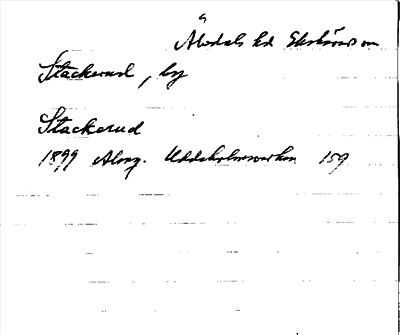 Älvdals hd Ekshärads sn
Stackerud, by
Stackerud
1899 Almg. Uddeholmsverken 159